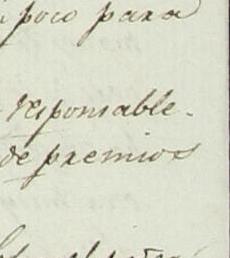 poco para
responsable.
de premios